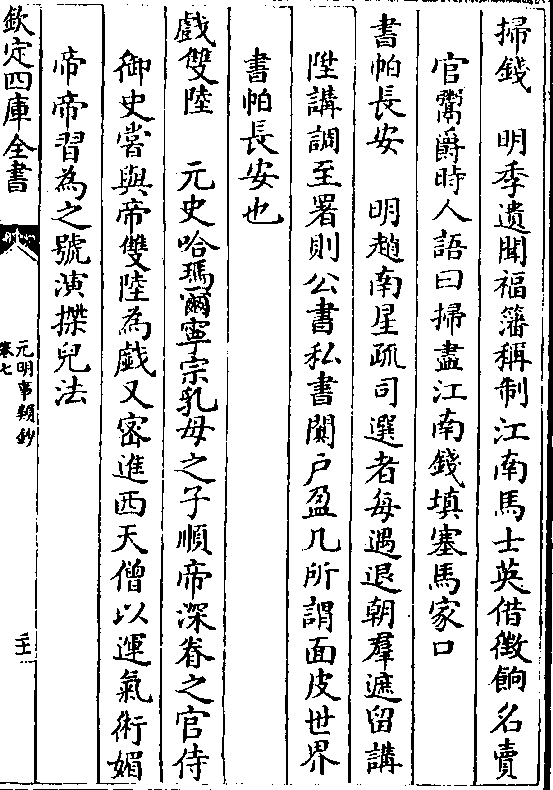 掃錢　明季遺聞福藩稱制江南馬士英借徵餉名賣
官鬻爵時人語曰掃盡江南錢填塞馬家口
書帕長安　明趙南星疏司選者每遇退朝羣遮留講
陞講調至署則公書私書闐户盈几所謂面皮世界
書帕長安也
戲雙陸　元史哈瑪爾寧宗乳母之子順帝深眷之官侍
御史嘗與帝雙陸為戲又密進西天僧以運氣術媚
帝帝習為之號演揲兒法
欽定四庫全書
元明事類鈔
卷七